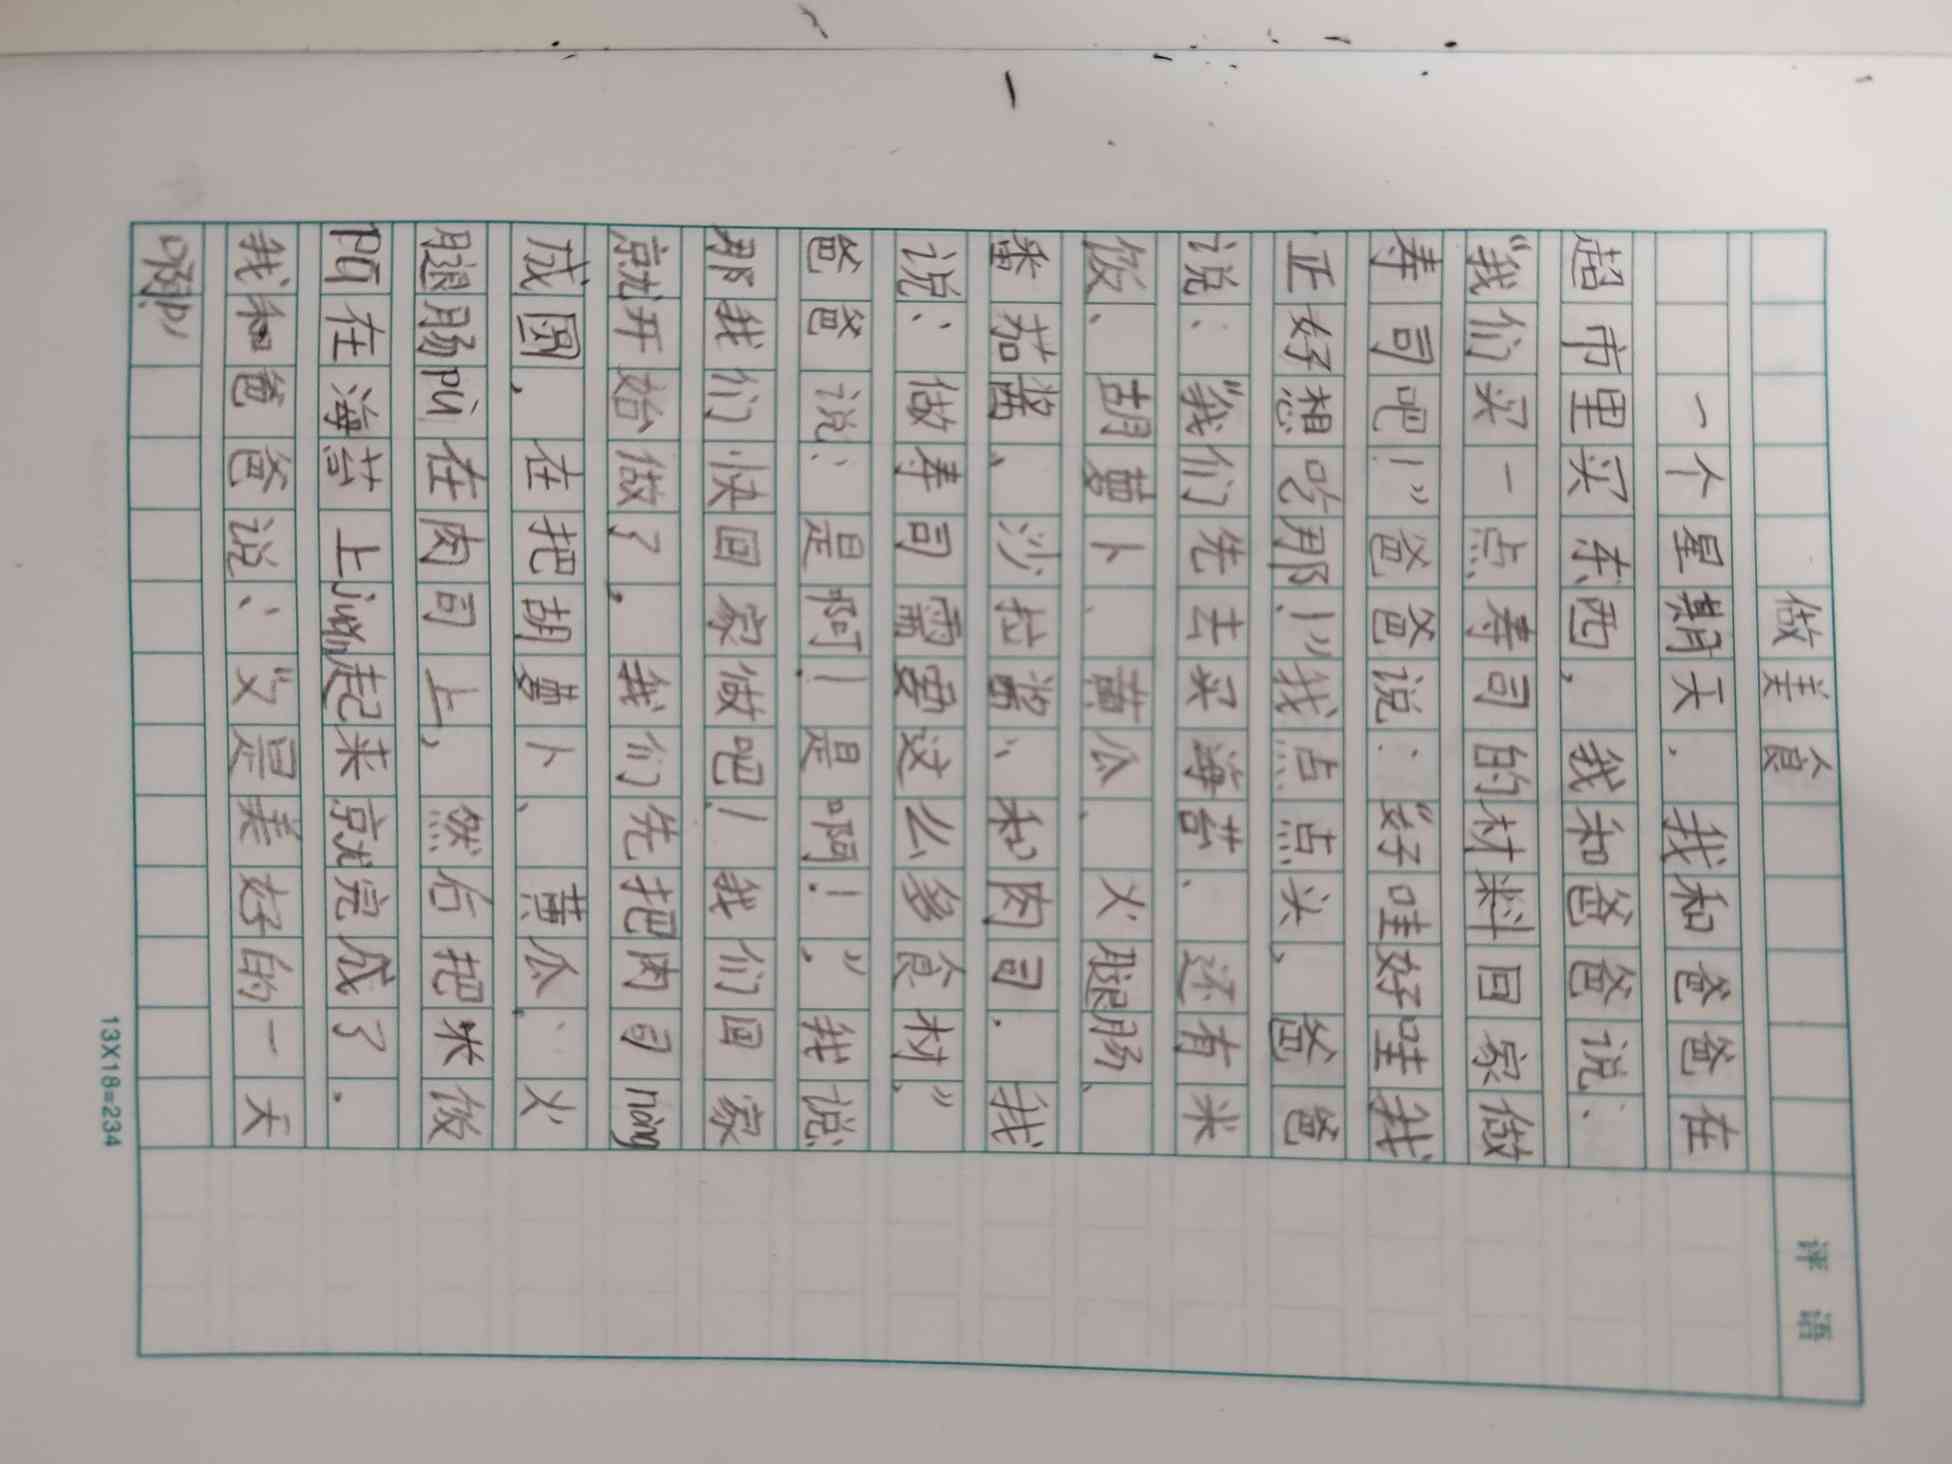 做美食
一个星期天．我和爸爸在
超市里买东西，我和爸爸说：
“我们买一点寿司的材料回家做
寿司吧！”爸爸说：“好哇好哇我
正好想吃那！”我点点头，爸爸
说：“我们先去买海苔．还有米
饭、胡萝卜、黄瓜、火腿肠、
番茄酱、沙拉酱、和肉司．我
说：做寿司需要这么多食材，”
爸爸说：是啊！是啊！．”我说
那我们快回家做吧！我们回家
就开始做了，我们先把肉司nòng
成圆，在把胡萝卜、黄瓜、火
腿肠pù在肉司上，然后把米饭
pū在海苔上juǎn起来就完成了．
我和爸爸说：“又是美好的一天
啊”
评 语
13X18=234